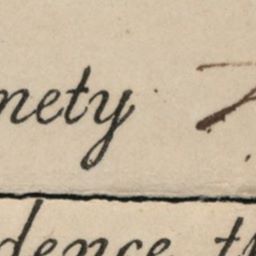 nety
dence th